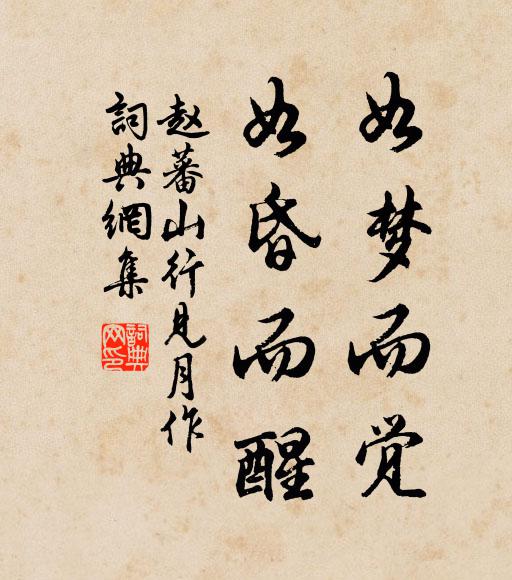 如梦而觉
如昏而醒
赵蕃山行见月作
詞典網集
詞典网印